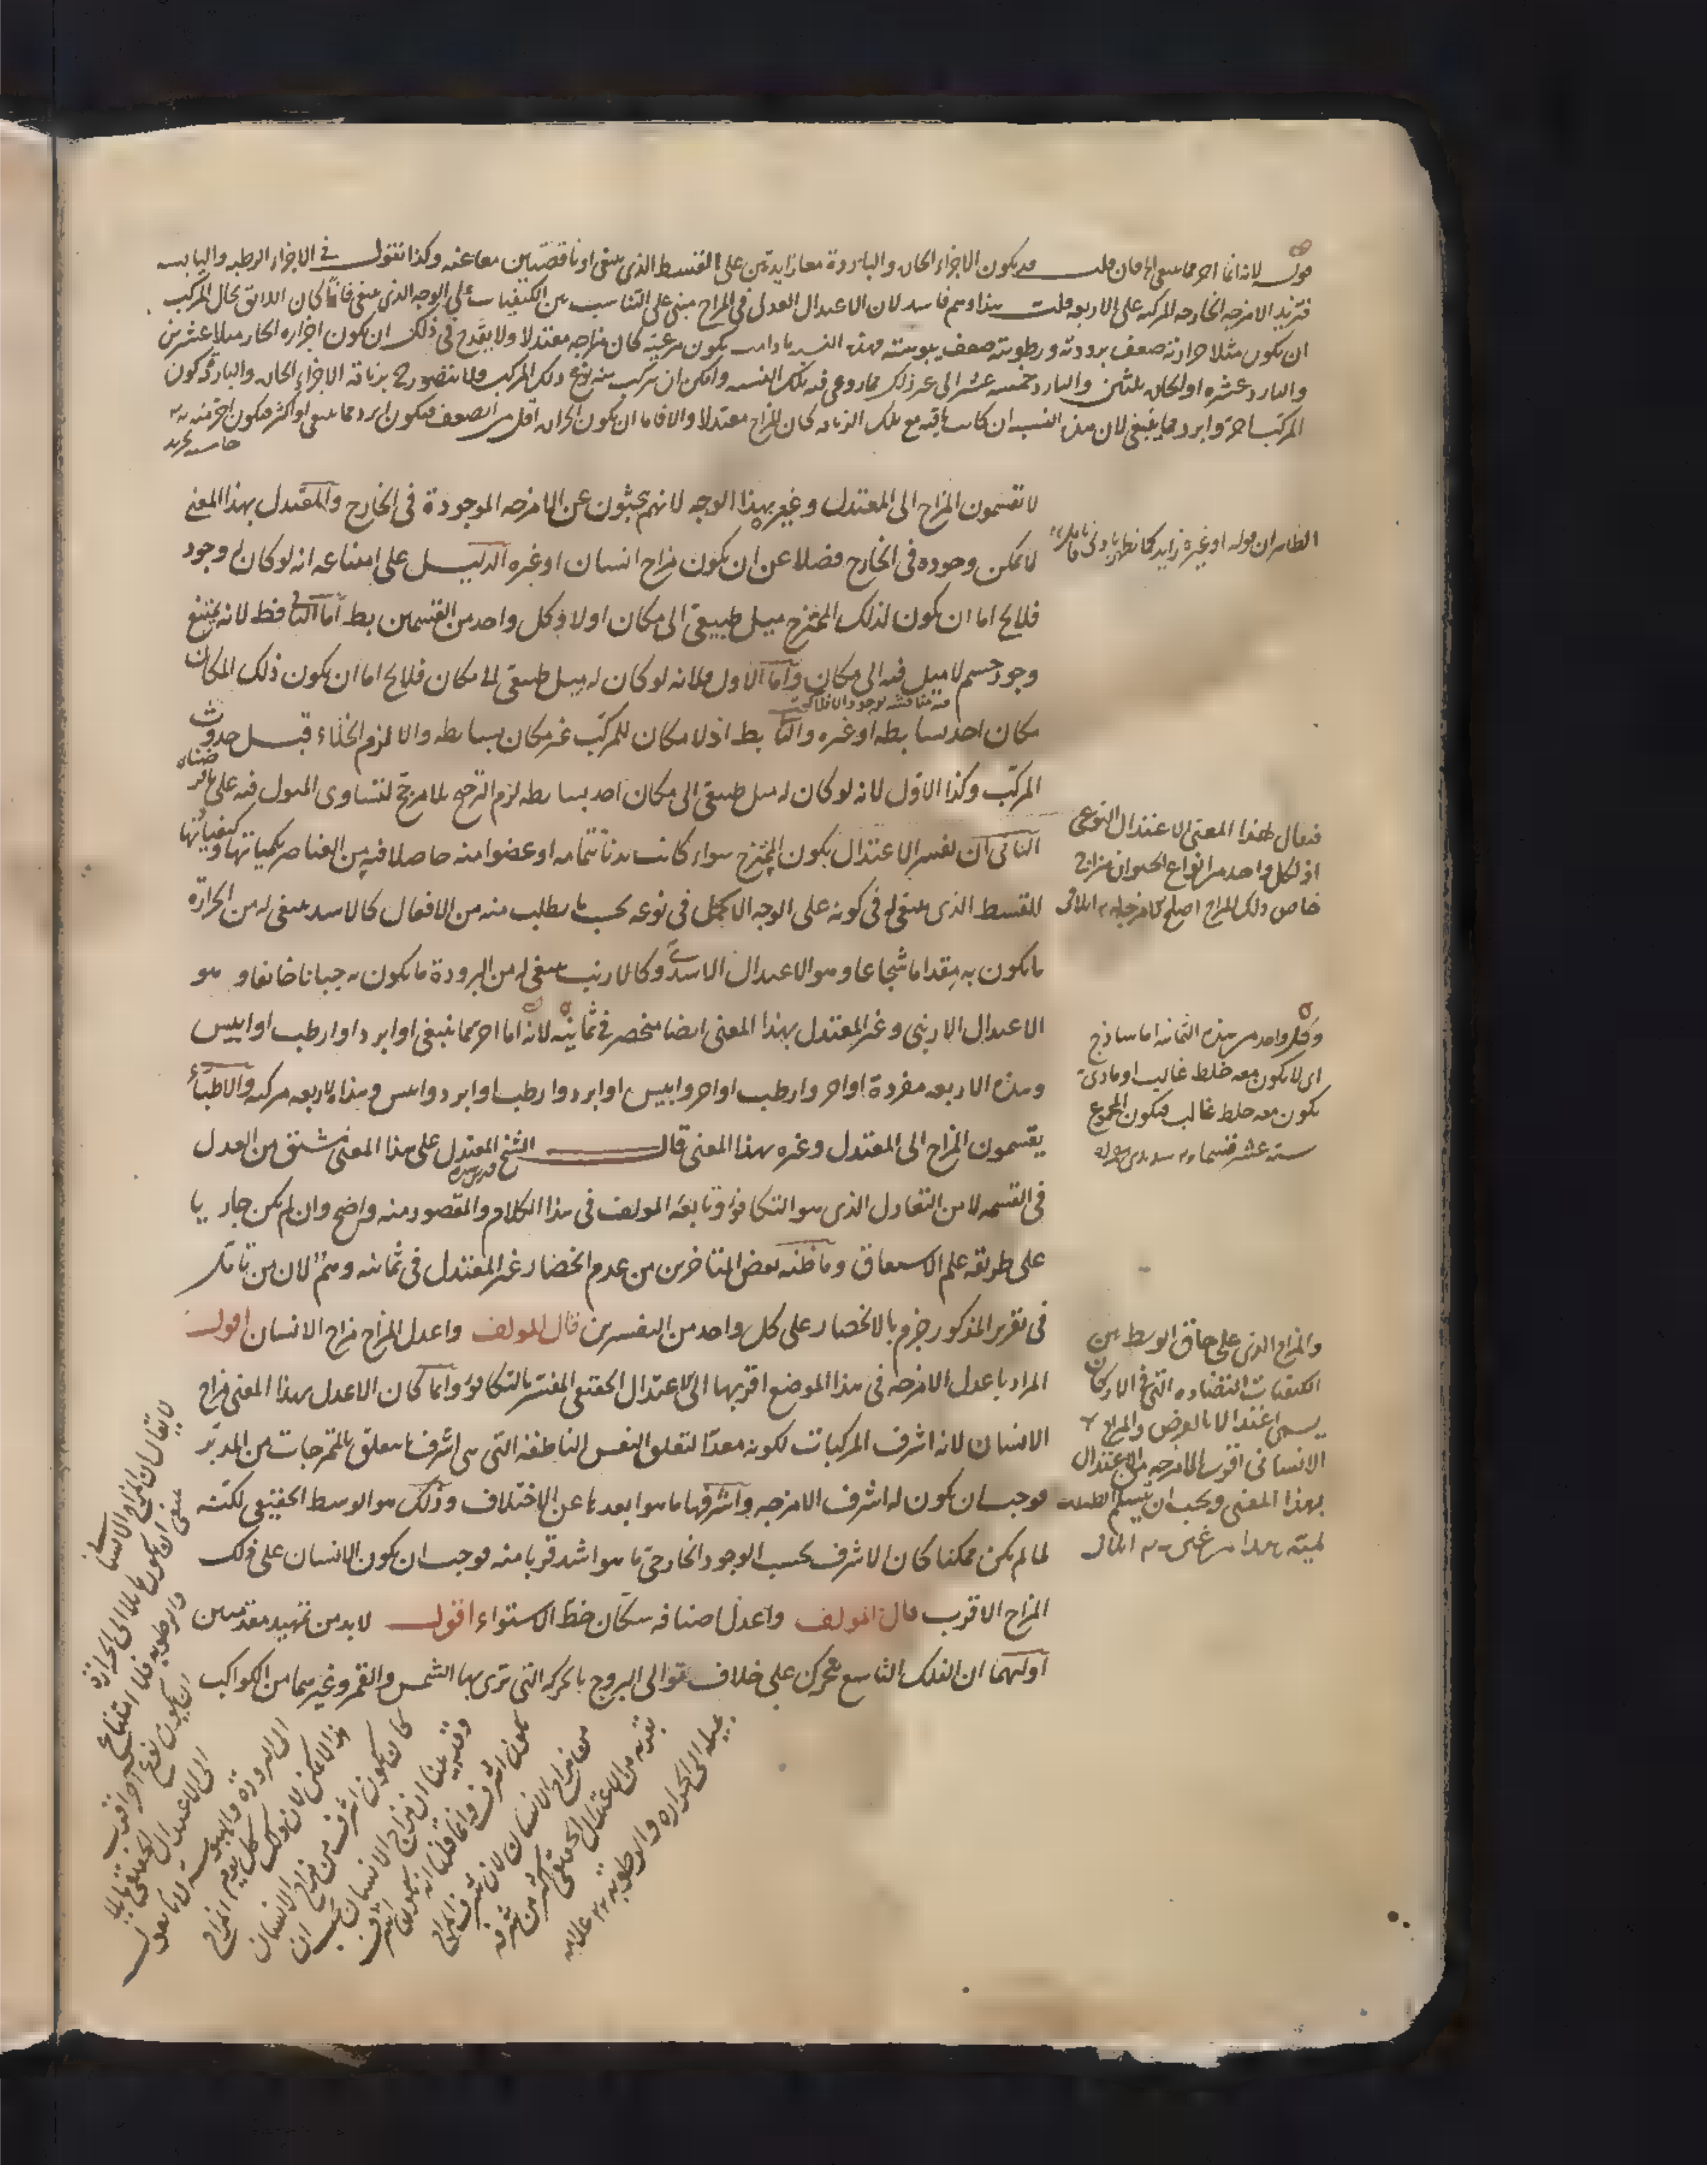 قوله لانه اما احر مما ينبغى الخ فان قلت قد يكون الاجزاء الحارة والباردة معا زايدتين على القسط الذى ينبغى او ناقصتين معا عنه وكذا نقول فى الاجزاء الرطبه واليابسه
فتزيد الامزجه الخارجه المركبه على الاربعه قلت هذا وهم فاسد لان الاعتدال العدلى فى المزاج مبنى على التناسب بين الكيفيات على الوجه الذى ينبغى فاذا كان اللائق بحال المركب
ان يكون مثلا حرارته ضعف برودته ورطوبته ضعف يبوسته فهذه النسبه مادامت يكون مرعيّه كان مزاجه معتدلا ولا يقدح فى ذلك ان يكون اجزاءه الحاره مثلا عشرين
والبارد عشره او الحار ثلثين والبارد خمسه عشر الى غير ذلك مما روعى فيه تلك النسبه وامكن ان يتركب منه نوع ذلك المركب ولا يتصور ح بزيادة الاجزاء الحاره والبارده كون
المركب احرّ وابرد مما ينبغى لان هذه النسبه ان كانت باقيه مع تلك الزياده كان المزاج معتدلا والا فاما ان يكون الحراره اقل من الضعف فيكون ابرد مما ينبغى او اكثر فيكون احرّ منه
لا تقسمون المزاج الى المعتدل وغيره بهذا الوجه لانهم يبحثون عن الامزجه الموجودة فى الخارج والمعتدل بهذا المعنى
لا يمكن وجوده فى الخارج فضلا عن ان يكون مزاج انسان او غيره الدليل على امتناعه انه لو كان له وجود
فلا يخ اما ان يكون لذلك الممتزج ميل طبيعى الى مكان اولا وكل واحد من القسمين بط اما الثانى فظ لانه يمتنع
وجود جسم لا ميل فيه الى مكان واما الاول فلانه لو كان له ميل طبيعى الى مكان فلا يخ اما ان يكون ذلك المكان
مكان احد بسايطه او غيره والثانى بط اذ لا مكان للمركّب غير مكان بسايطه والا لزم الخلاء قبل حدوث
المركب وكذا الاوّل لانه لو كان له ميل طبيعى الى مكان احد بسايطه لزم الترجيح بلا مرجّح لتساوى الميول فيه على ما فرضناه
الثانى ان نفسر الاعتدال بكون الممتزج سواء كانت بدنا بتمامه او عضوا منه حاصلا فيه من العناصر بكمياتها وكيفياتها
القسط الذى ينبغى له فى كونه على الوجه الاكمل فى نوعه بحسب ما يطلب منه من الافعال كالاسد ينبغى له من الحرارة
ما يكون به مقداما شجاعا وهو الاعتدال الاسدىّ وكالارنب ينبغى له من البرودة ما يكون به جبانا خائفا و هو
الاعتدال الارنبى وغير المعتدل بهذا المعنى ايضا منحصر فى ثمانية لانه اما احر مما ينبغى او ابرد او ارطب او ايبس
وهذه الاربعه مفردة او احر وارطب او احر وايبس او ابرد وارطب او ابرد وايبس وهذه الاربعه مركبه والاطباء
يقسمون المزاج الى المعتدل وغيره بهذا المعنى قال الشيخ المعتدل على هذا المعنى مشتق من العدل
قدس سره
فى القسمه لا من التعادل الذى هو التكافؤ وتابعه المولف فى هذا الكلام والمقصود منه واضح وان لم يكن جاريا
على طريقه علم الاشتقاق وما ظنه بعض المتاخرين من عدم انحصار غير المعتدل فى ثمانيه وهم لان من تامل
فى تقرير المذكور جزم بالانحصار على كل واحد من التفسيرين قال المولف واعدل المزاج مزاج الانسان اقول
المراد باعدل الامزجه فى هذا الموضع اقربها الى الاعتدال الحقيقى المفسّر بالتكافؤ وانما كان الاعدل بهذا المعنى مزاج
الانسان لانه اشرف المركبات لكونه معدّا لتعلق النفس الناطقه التى هى اشرف ما يتعلق بالممتزجات من المدبّر
فوجب ان يكون له اشرف الامزجه واشرفها ما هو ابعدها عن الاختلاف وذلك هو الوسط الحقيقى لكنّه
لما لم يكن ممكنا كان الاشرف بحسب الوجود الخارجى ما هو اشد قربا منه فوجب ان يكون الانسان على ذلك
المزاج الاقرب قال المولف واعدل اصنافه سكان خطّ الاستواء اقول لابد من تمهيد مقدمتين
اوليهما ان الفلك التاسع متحرك على خلاف توالى البروج بالحركه التى ترى بها الشمس والقمر وغيرهما من الكواكب
الظاهر ان قوله او غيره زايد كما يظهر بادنى تامل
فيقال لهذا المعنى الاعتدال النوعى
اذ لكل واحد من انواع الحيوان مزاج
خاص ذلك المزاج اصلح
وكل واحد من هذه الثمانيه اما ساذج
اى لا يكون معه خلط غالب او مادى
يكون معه خلط غالب فيكون المجموع
سته عشر قسما
والمزاج الذى على حاق الوسط بين
الكيفيات المتضاده التى فى الاركان
يسمى اعتدالا بالعرض والمزاج
الانسانى اقرب الامزجه من الاعتدال
بهذا المعنى ويجب ان يتسلم الطبيب
لا يقال ان المزاج الانسانى
ينبغى ان يكون مايلا الى الحرارة
والرطوبه فلا امتناع
ان يكون نوع اخر اقرب
الى الاعتدال الحقيقى مايلا
الى البرودة واليبوسة لانا نقول
هذا لا يمكن لان ذلك
كان يكون اشرف من مزاج الانسان
من مزاج الانسان لان شرف المزاج
بقربه من الاعتدال الحقيقى اكثر من شرفه
بميله الى الحرارة والرطوبة